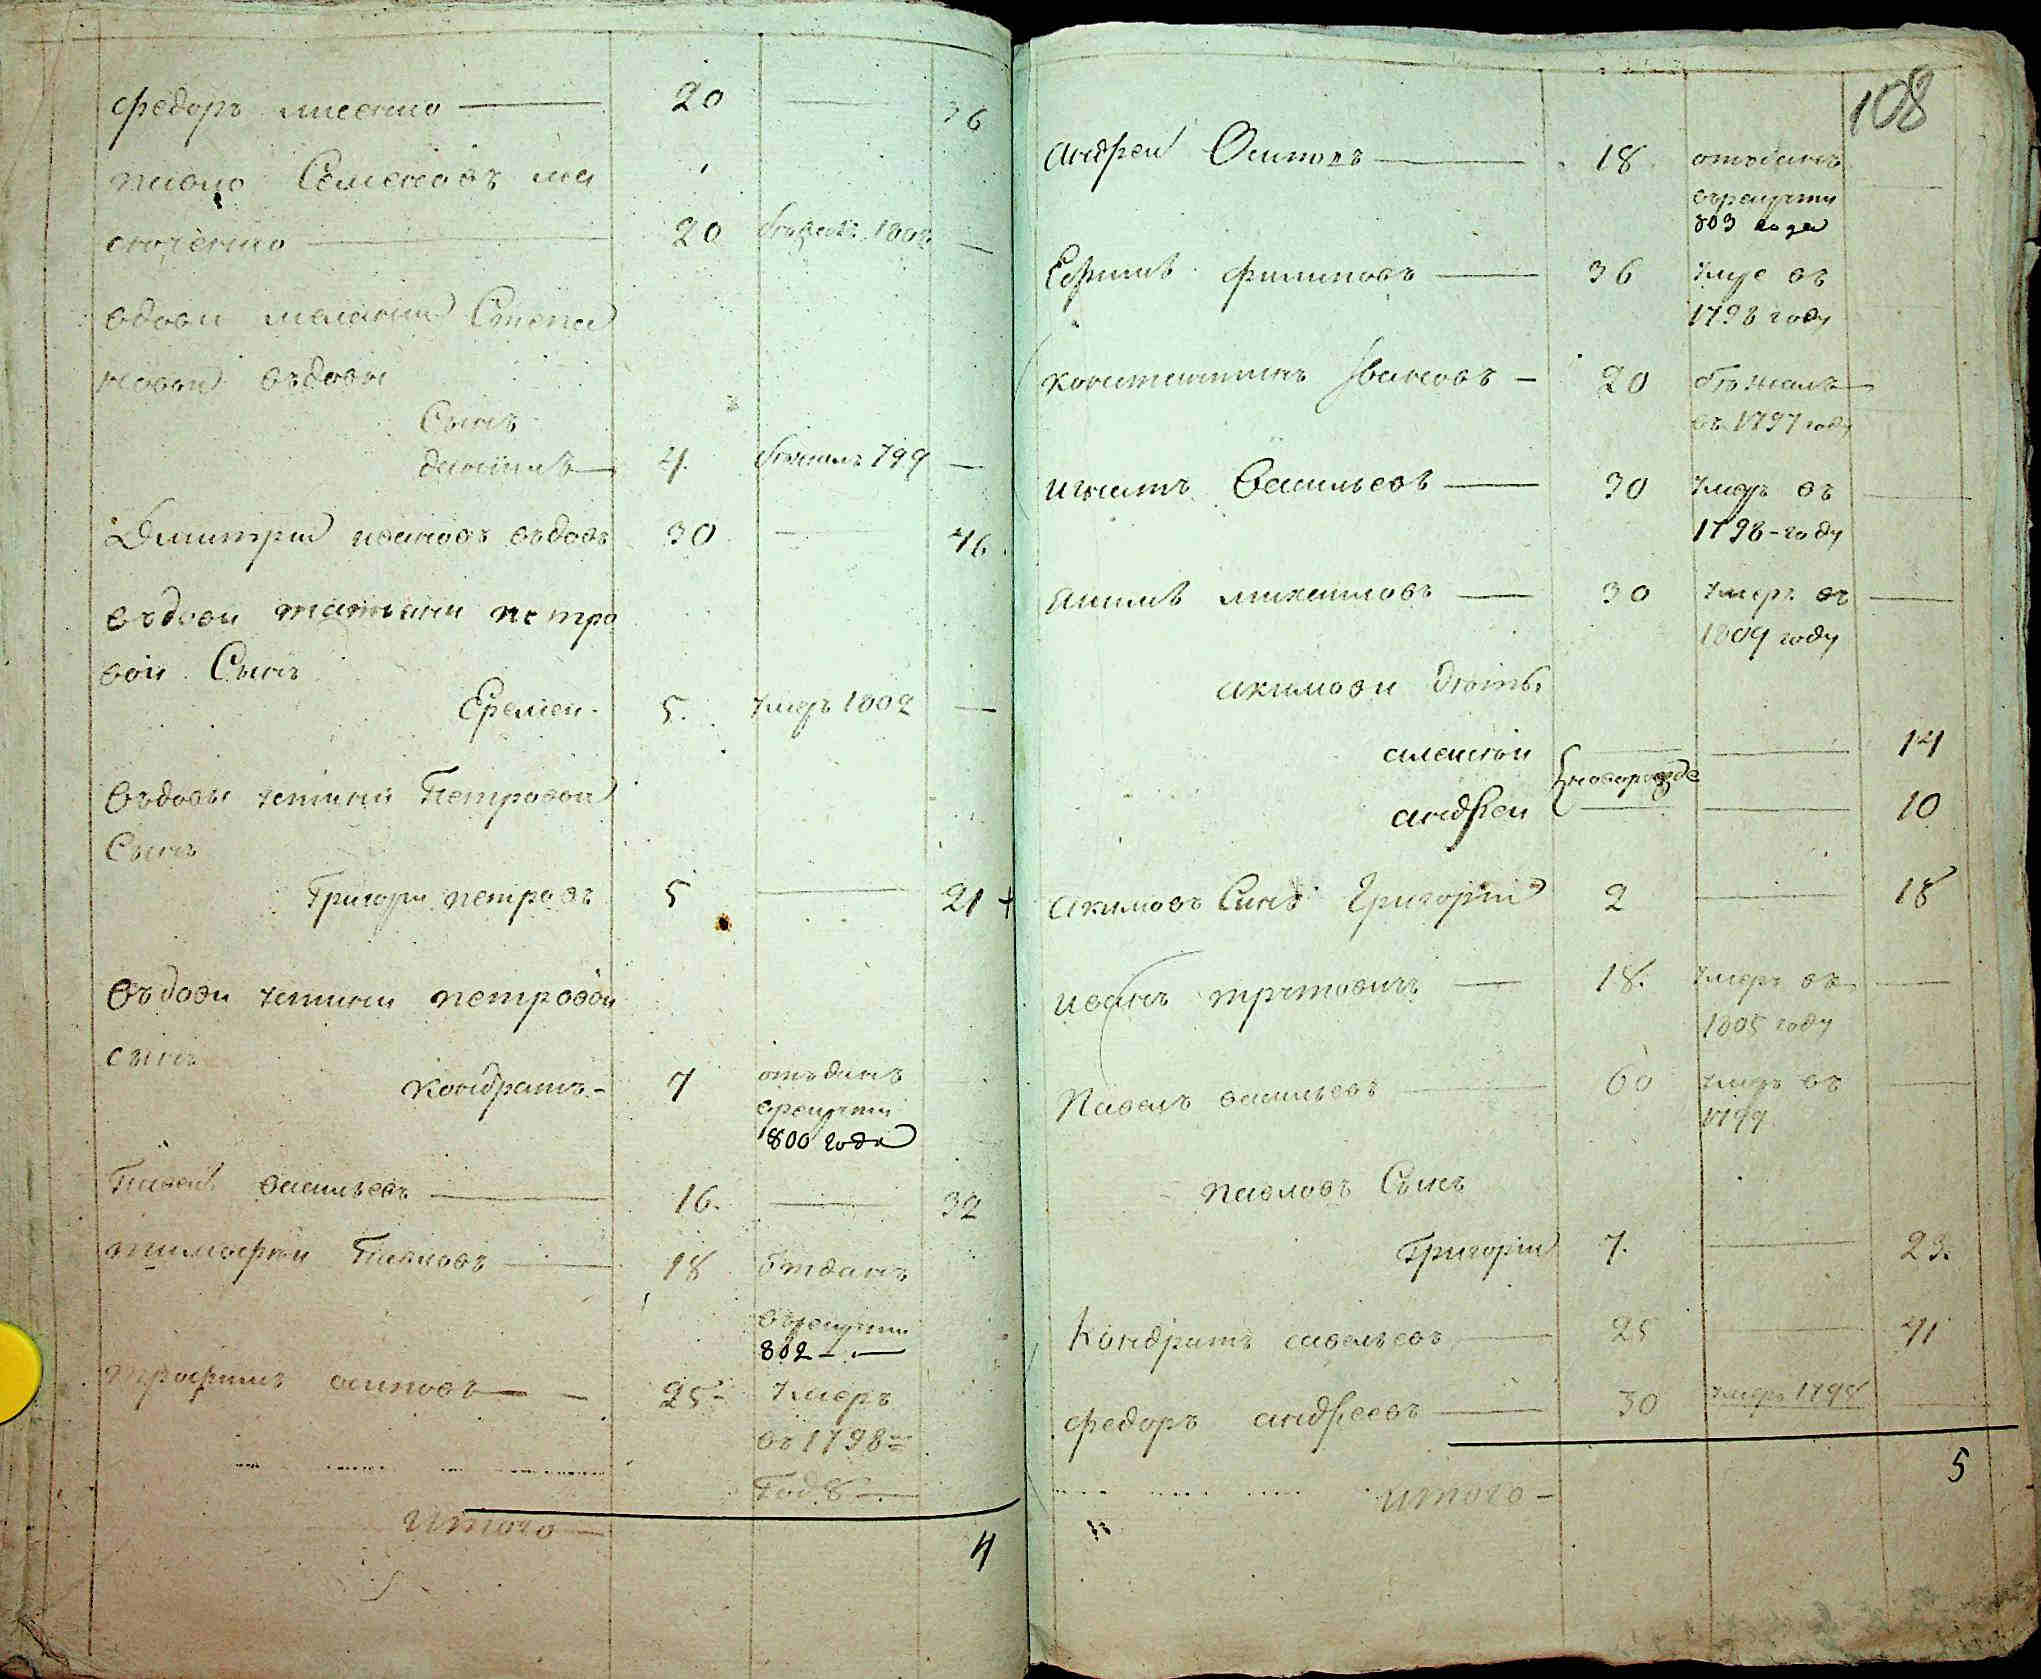 федоръ лисенко — 20 — 36
павло Семеновъ ма
сюченко — 20 бежалъ 1802 —
вдови мелании Степа
новои въдовы
Сынъ
даниилъ — 4. бежалъ 799 —
Димитрии ивановъ въдовъ 30 — 46.
въдови татияни петро
вои Сынъ
Еремеи - 5. умеръ 1802 —
Въдовы устини Петровои
Сынъ
Григори петровъ 5 — 21 +
Въдови устини петровои
сынъ
Кондратъ - 7 отъданъ
врекруты
1800 года
Павелъ василъевъ — 16. — 32
тимофеи Павловъ — 18 Отданъ
Върекруты
802 —
трофимъ осиповъ — 25 - умеръ
въ 1798 м
Годѣ —
Итого —
4
108
андреи Осиповъ — 18 отъданъ
върекруты
803 года
Ефимъ филиповъ — 36 умре въ
1798 году
константинъ Ивановъ — 20 бежалъ
въ 1797 году
игнатъ Васильевъ — 30 умеръ въ —
1798 - году
акимъ михаиловъ — 30 умеръ въ —
1804 году
акимови дѣти
алексѣи — — 14
новорожде
андреи — — 10
акимовъ Синъ Григории 2 — 18
иванъ — 18. умеръ въ —
1805 году
Павелъ василъевъ — 60 умеръ въ —
1799
павловъ Сынъ
Григории 7. — 23.
Кондратъ савелъевъ — 25 — 41
федоръ андреевъ — 30 умеръ 1798 —
итого —
5